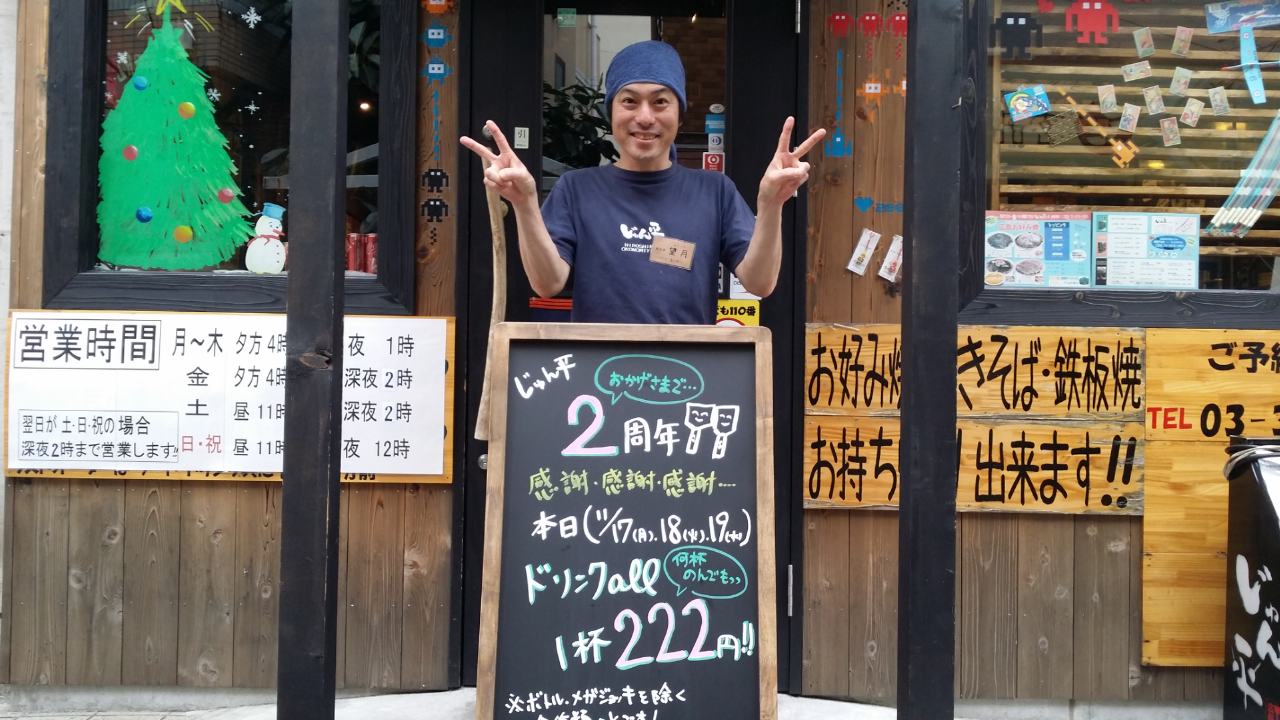 営業時間
月〜木 夕方4時 夜 1時
金 夕方4時 深夜 2時
土 昼 11時 深夜 2時
日・祝 昼 11時 夜 12時
翌日が 土・日・祝の場合
深夜2時まで営業します!!
引
じゅん平
望月
も110番
じゅん平
おかげさまで…
2周年
感謝・感謝・感謝….
本日(11/17(月).18(火).19(水))
ドリンクall
何杯
のんでもっっ
1杯222円!!
※ボトル・メガジョッキを除く
お好み焼 きそば・鉄板焼
お持ち 出来ます!!
ご予約
TEL 03-3
じゅん平